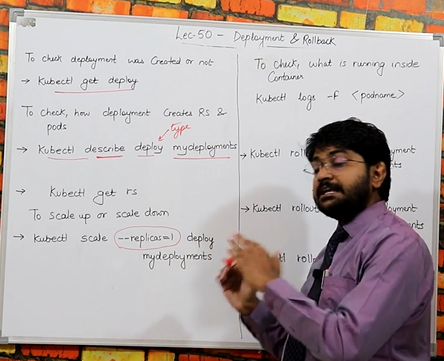 Lec-50 - Deployment & Rollback
To check deployment was Created or not
→ Kubectl get deploy
To check, how deployment Creates RS &
pods
type
→ Kubectl describe deploy mydeployments
→ Kubectl get rs
To scale up or scale down
→ Kubectl scale --replicas=1 deploy
mydeployments
To check, what is running inside
Container
Kubectl logs -f <podname>
→ Kubectl roll
ment
→ Kubectl rollout